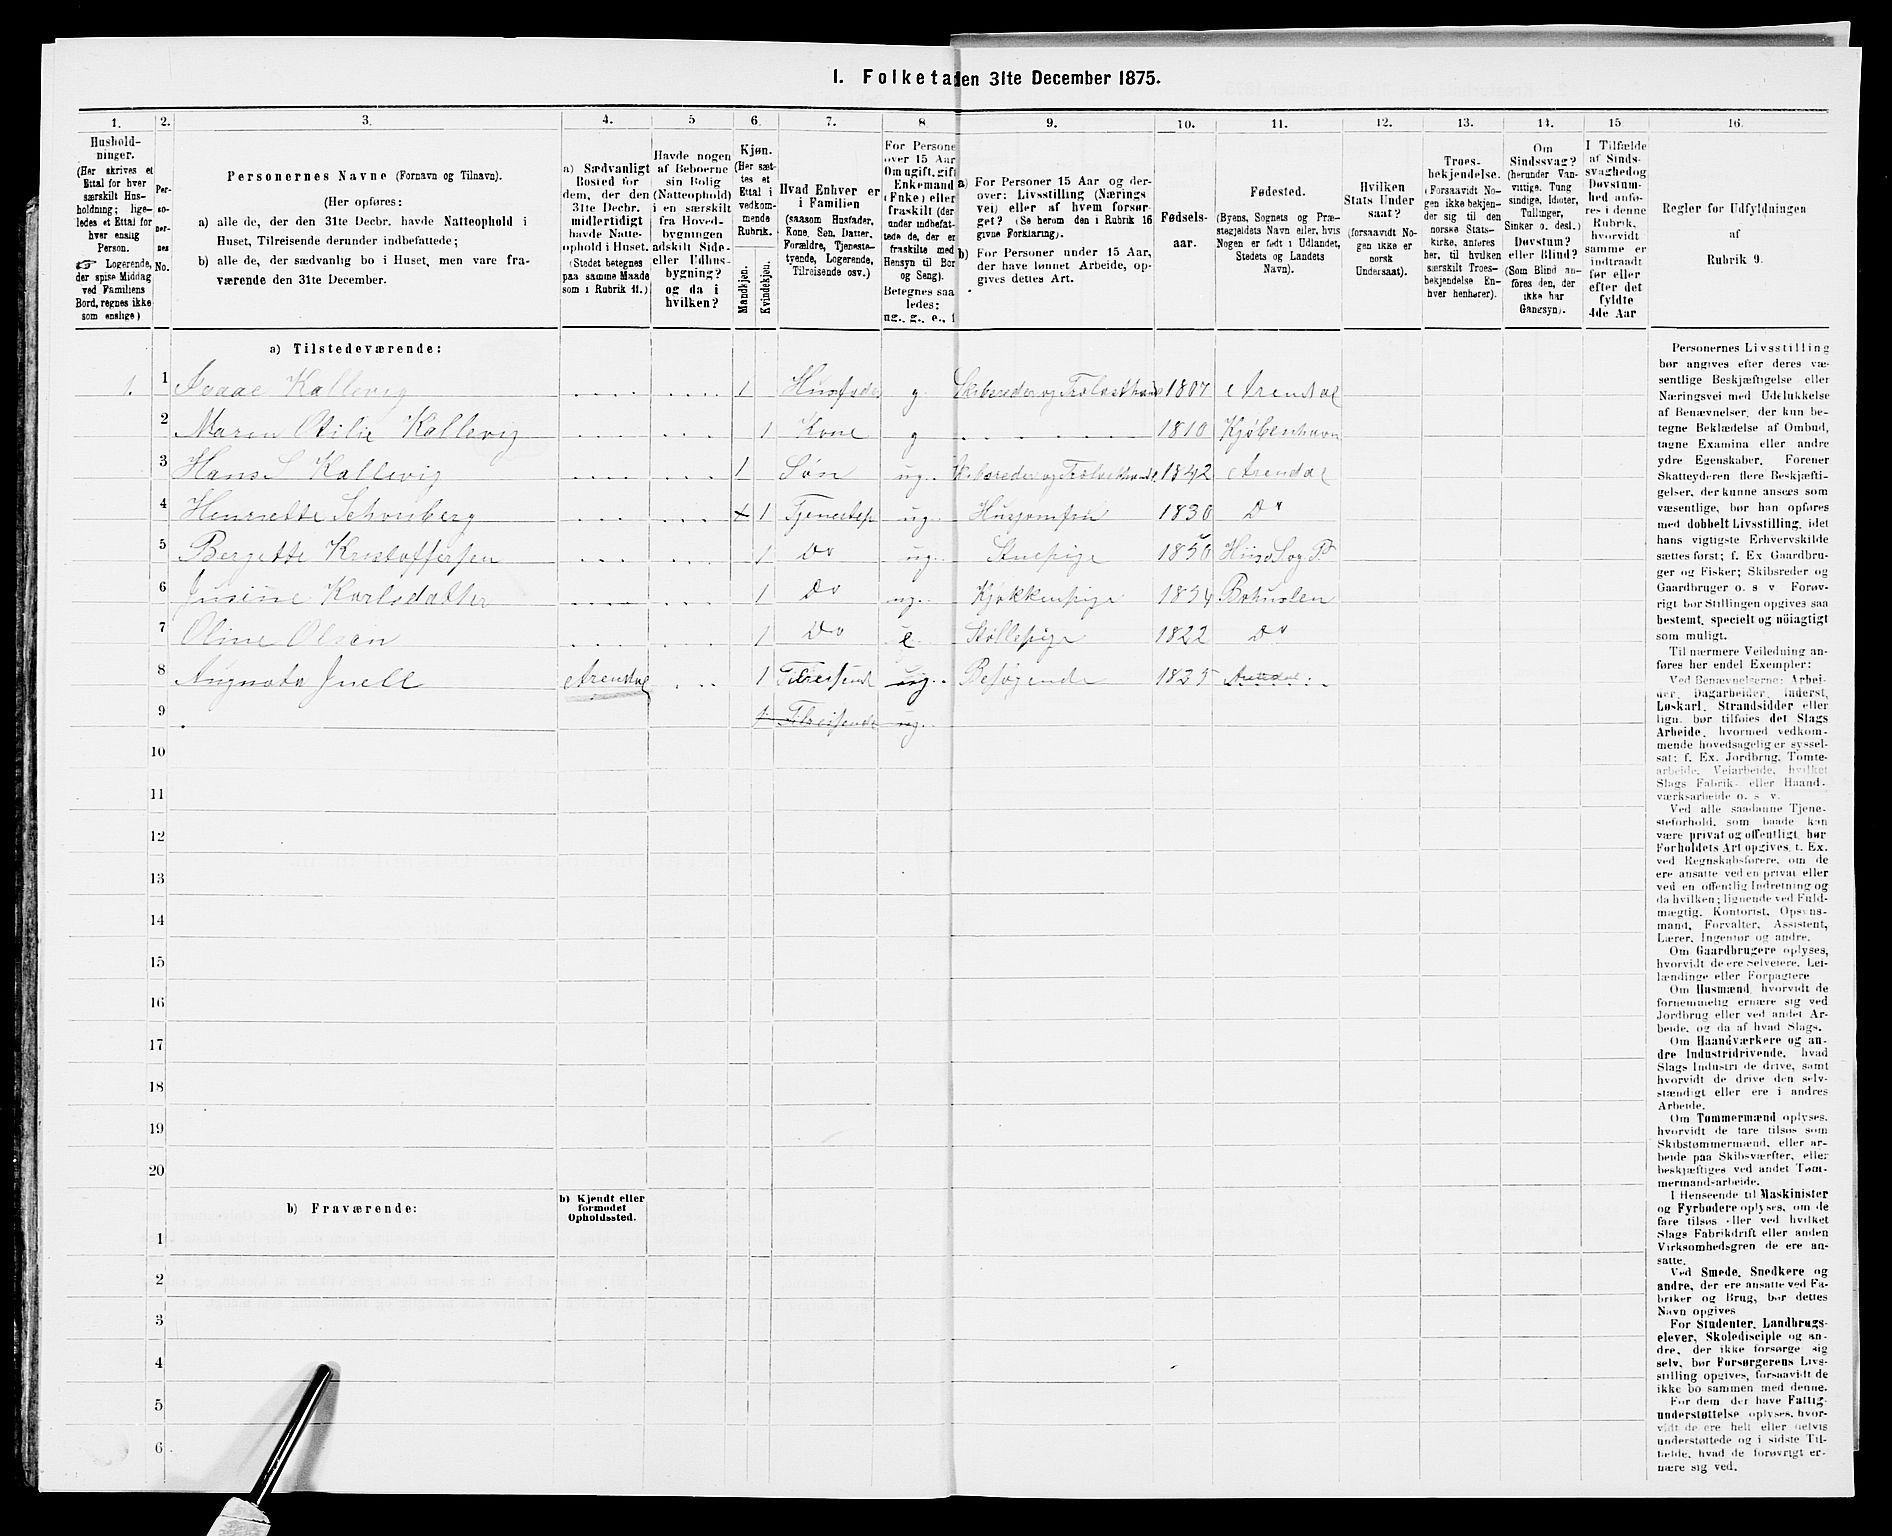 1. Folketa
den 31te December 1875.
1.
2.
3.
4.
5
6.
7.
8
9.
10.
11.
12.
13.
14.
15
16.
Hushold-
ninger.
(Her skrives et
Ettal for hver
særskilt Hus-
holdning; lige-
ledes et Ettal for
hver enslig
Person.
☞ Logerende,
der spise Middag
ved Familiens
Bord, regnes ikke
som enslige)
Per-
so-
ner-
nes
No.
Personernes Navne (Fornavn og Tilnavn).
(Her opføres:
a) alle de, der den 31te Decbr. havde Natteophold i
Huset, Tilreisende derunder indbefattede;
b) alle de, der sædvanlig bo i Huset, men vare fra-
værende den 31te December.
a) Sædvanligt
Bosted for
dem, der den
31te Decbr.
midlertidigt
havde Natte-
ophold i Huset.
(Stedet betegnes
paa samme Maade
som i Rubrik 11.)
Havde nogen
af Beboerne
sin Bolig
(Natteophold)
i en særskilt
fra Hoved-
bygningen
adskilt Side-
eller Udhus-
bygning?
og da i
hvilken?
Kjøn.
(Her sæt-
tes et
Ettal i
vedkom-
mende
Rubrik.
Mandkjøn.
Kvindekjøn.
Hvad Enhver er
i Familien
(saasom Husfader,
Kone, Søn, Datter,
Forældre, Tjeneste-
tyende, Logerende,
Tilreisende osv.)
For Persone
over 15 Aar
Om ugift, gift
Enkemand
(Enke) eller
fraskilt (der
under indbefat-
tede de, der er
fraskilte med
Hensyn til Bor
og Seng).
Betegnes saa
ledes:
ug., g., e., f
a) For Personer 15 Aar og der-
over: Livsstilling (Nærings
vei) eller af hvem forsør-
get? (Se herom den i Rubrik 16
givne Forklaring.)
b) For Personer under 15 Aar,
der have lønnet Arbeide, op-
gives dettes Art.
Fødsels-
aar.
Fødested.
(Byens, Sognets og Præ-
stegjeldets Navn eller, hvis
Nogen er født i Udlandet,
Stedets og Landets
Navn).
Hvilken
Stats Under
saat?
(forsaavidt No-
gen ikke er
norsk
Undersaat).
Troes-
bekjendelse.
(Forsaavidt No-
gen ikke bekjen-
der sig til den
norske Stats-
kirke, anføres
her, til hvilken
særskilt Troes-
bekjendelse En-
hver henhører).
Om
Sindssvag?
(herunder Van-
vittige, Tung
sindige, Idioter,
Tullinger,
Sinker o. desl.)
Døvstum?
eller Blind?
(Som Blind an-
føres den, der
ikke har
Gangsyn).
I Tilfælde
af Sinds-
svaghed og
Døvstum-
hed anfø-
res i denne
Rubrik,
hvorvidt
samme er
indtraadt
før eller
efter det
fyldte
4de Aar
Regler for Udfyldningen
af
Rubrik 9.
a) Tilstedeværende:
1. 1 Isaac Kallevig 1 Husfader g. Skibsreder og Trælasthand 1807 Arendal
2 Maren Otilie Kallevig 1 Kone g 1810 Kjøbenhavn
3 Hans S Kallevig 1 Søn ug. Skibsreder og Trælasthandl 1842 Arendal
4 Henriette Schonberg 1 Tjenestep ug. Husjomfru 1830 Do
5 Bergette Kristoffersen 1 Do ug. Stuepige 1850 Hiisö Sog P
6 Jusine Karlsdatter 1 Do ug. Kjøkkenpige 1854 Bohuslen
7 Oline Olsen 1 Do e. 1822 Do
8 Augusta Juell Arendal 1 Tilreisend ug. Besøgende 1835 Arendal
9 1 Tilreisende ug.
10
11
12
13
14
15
16
17
18
19
20
b) Fraværende:
b) Kjendt eller
formodet
Opholdssted.
1
2
3
4
5
6
Personernes Livsstilling
bør angives efter deres væ-
sentlige Beskjæftigelse eller
Næringsvei med Udelukkelse
af Benævnelser, der kun be-
tegne Beklædelse af Ombud,
tagne Examina eller andre
ydre Egenskaber. Forener
Skatteyderen flere Beskjæfti-
gelser, der kunne ansees som
væsentlige, bør han opføres
med dobbelt Livsstilling, idet
hans vigtigste Erhvervskilde
sættes først; f. Ex Gaardbru-
ger og Fisker; Skibsreder og
Gaardbruger o. s v Forøv-
rigt bør Stillingen opgives saa
bestemt, specielt og nöiagtigt
som muligt.
Til nærmere Veiledning an-
føres her endel Exempler:
Ved Benævnelserne: Arbei-
der, Dagarbeider, Inderst,
Løskarl, Strandsidder eller
lign. bør tilføies det Slags
Arbeide, hvormed vedkom-
mende hovedsagelig er syssel-
sat; f. Ex. Jordbrug, Tomte-
arbeide, Veiarbeide, hvilket
Slags Fabrik- eller Haand-
værksarbeide o. s v.
Ved alle saadanne Tjene-
steforhold, som baade kan
være privat og offentligt, bør
Forholdets Art opgives, t. Ex.
ved Regnskabsførere, om de
ere ansatte ved en privat eller
ved en offentlig Indretning og
da hvilken; lignende ved Fuld-
mægtig, Kontorist, Opsyns-
mand, Forvalter, Assistent,
Lærer, Ingeniør og andre.
Om Gaardbrugere oplyses,
hvorvidt de ere Selveiere, Lei-
lændinge eller Forpagtere
Om Husmænd, hvorvidt de
fornemmelig ernære sig ved
Jordbrug eller ved andet Ar-
beide, og da af hvad Slags.
Om Haandværkere og an-
dre Industridrivende, hvad
Slags Industri de drive, samt
hvorvidt de drive den selv-
stændigt eller ere i andres
Arbeide.
Om Tømmermænd oplyses,
hvorvidt de fare tilsøs som
Skibstømmermænd, eller ar-
beide paa Skibsværfter, eller
beskjæftiges ved andet Tøm-
mermand-arbeide.
I Henseende til Maskinister
og Fyrbødere oplyses, om de
fare tilsøs eller ved hvilket
Slags Fabrikdrift eller anden
Virksomhedsgren de ere an-
satte.
Ved Smede, Snedkere og
andre, der ere ansatte ved Fa-
briker og Brug, bør dettes
Navn opgives
For Studenter, Landbrugs-
elever, Skoledisciple og an-
dre, der ikke forsørge sig
selv, bør Forsørgerens Livs-
stilling opgives, forsaavidt de
ikke bo sammen med denne.
For dem der have Fattig-
understøttelse oplyses, hvor-
vidt de ere helt eller delvis
understøttede og i sidste Til-
fælde, hvad de forøvrigt er-
nære sig ved.